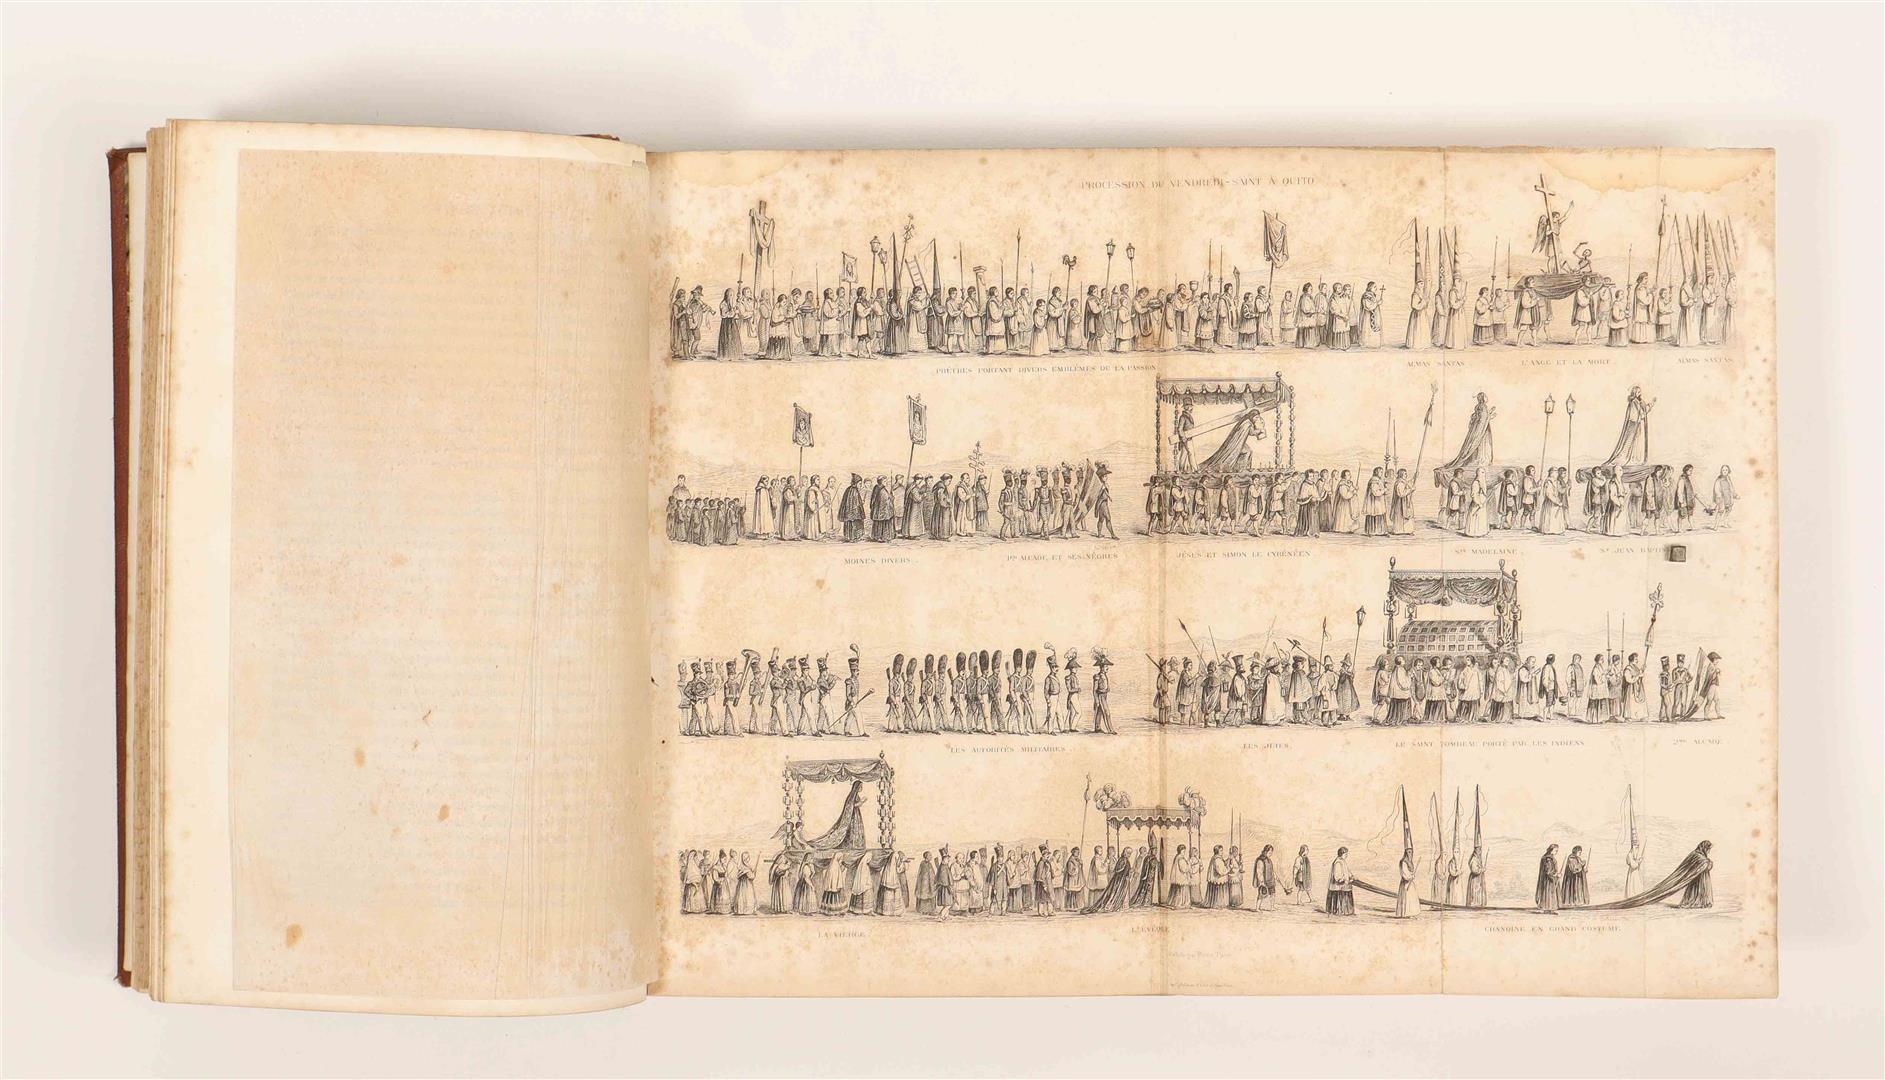 PROCESSION DU VENDREDI-SAINT À QUITO
PRÊTRES PORTANT DIVERS EMBLÈMES DE LA PASSION
ALMAS SANTAS
L'ANGE ET LA MORT.
ALMAS SANTAS
MOINES DIVERS.
1er ALCADE ET SES NÈGRES
JÉSUS ET SIMON LE CYRÉNÉEN
Ste MADELAINE.
St JEAN BAPTIS
LES AUTORITÉS MILITAIRES
LES JUIFS.
LE SAINT TOMBEAU PORTÉ PAR LES INDIENS
2me ALCADE
LA VIERGE
L'ÉVÊQUE
CHANOINE EN GRAND COSTUME